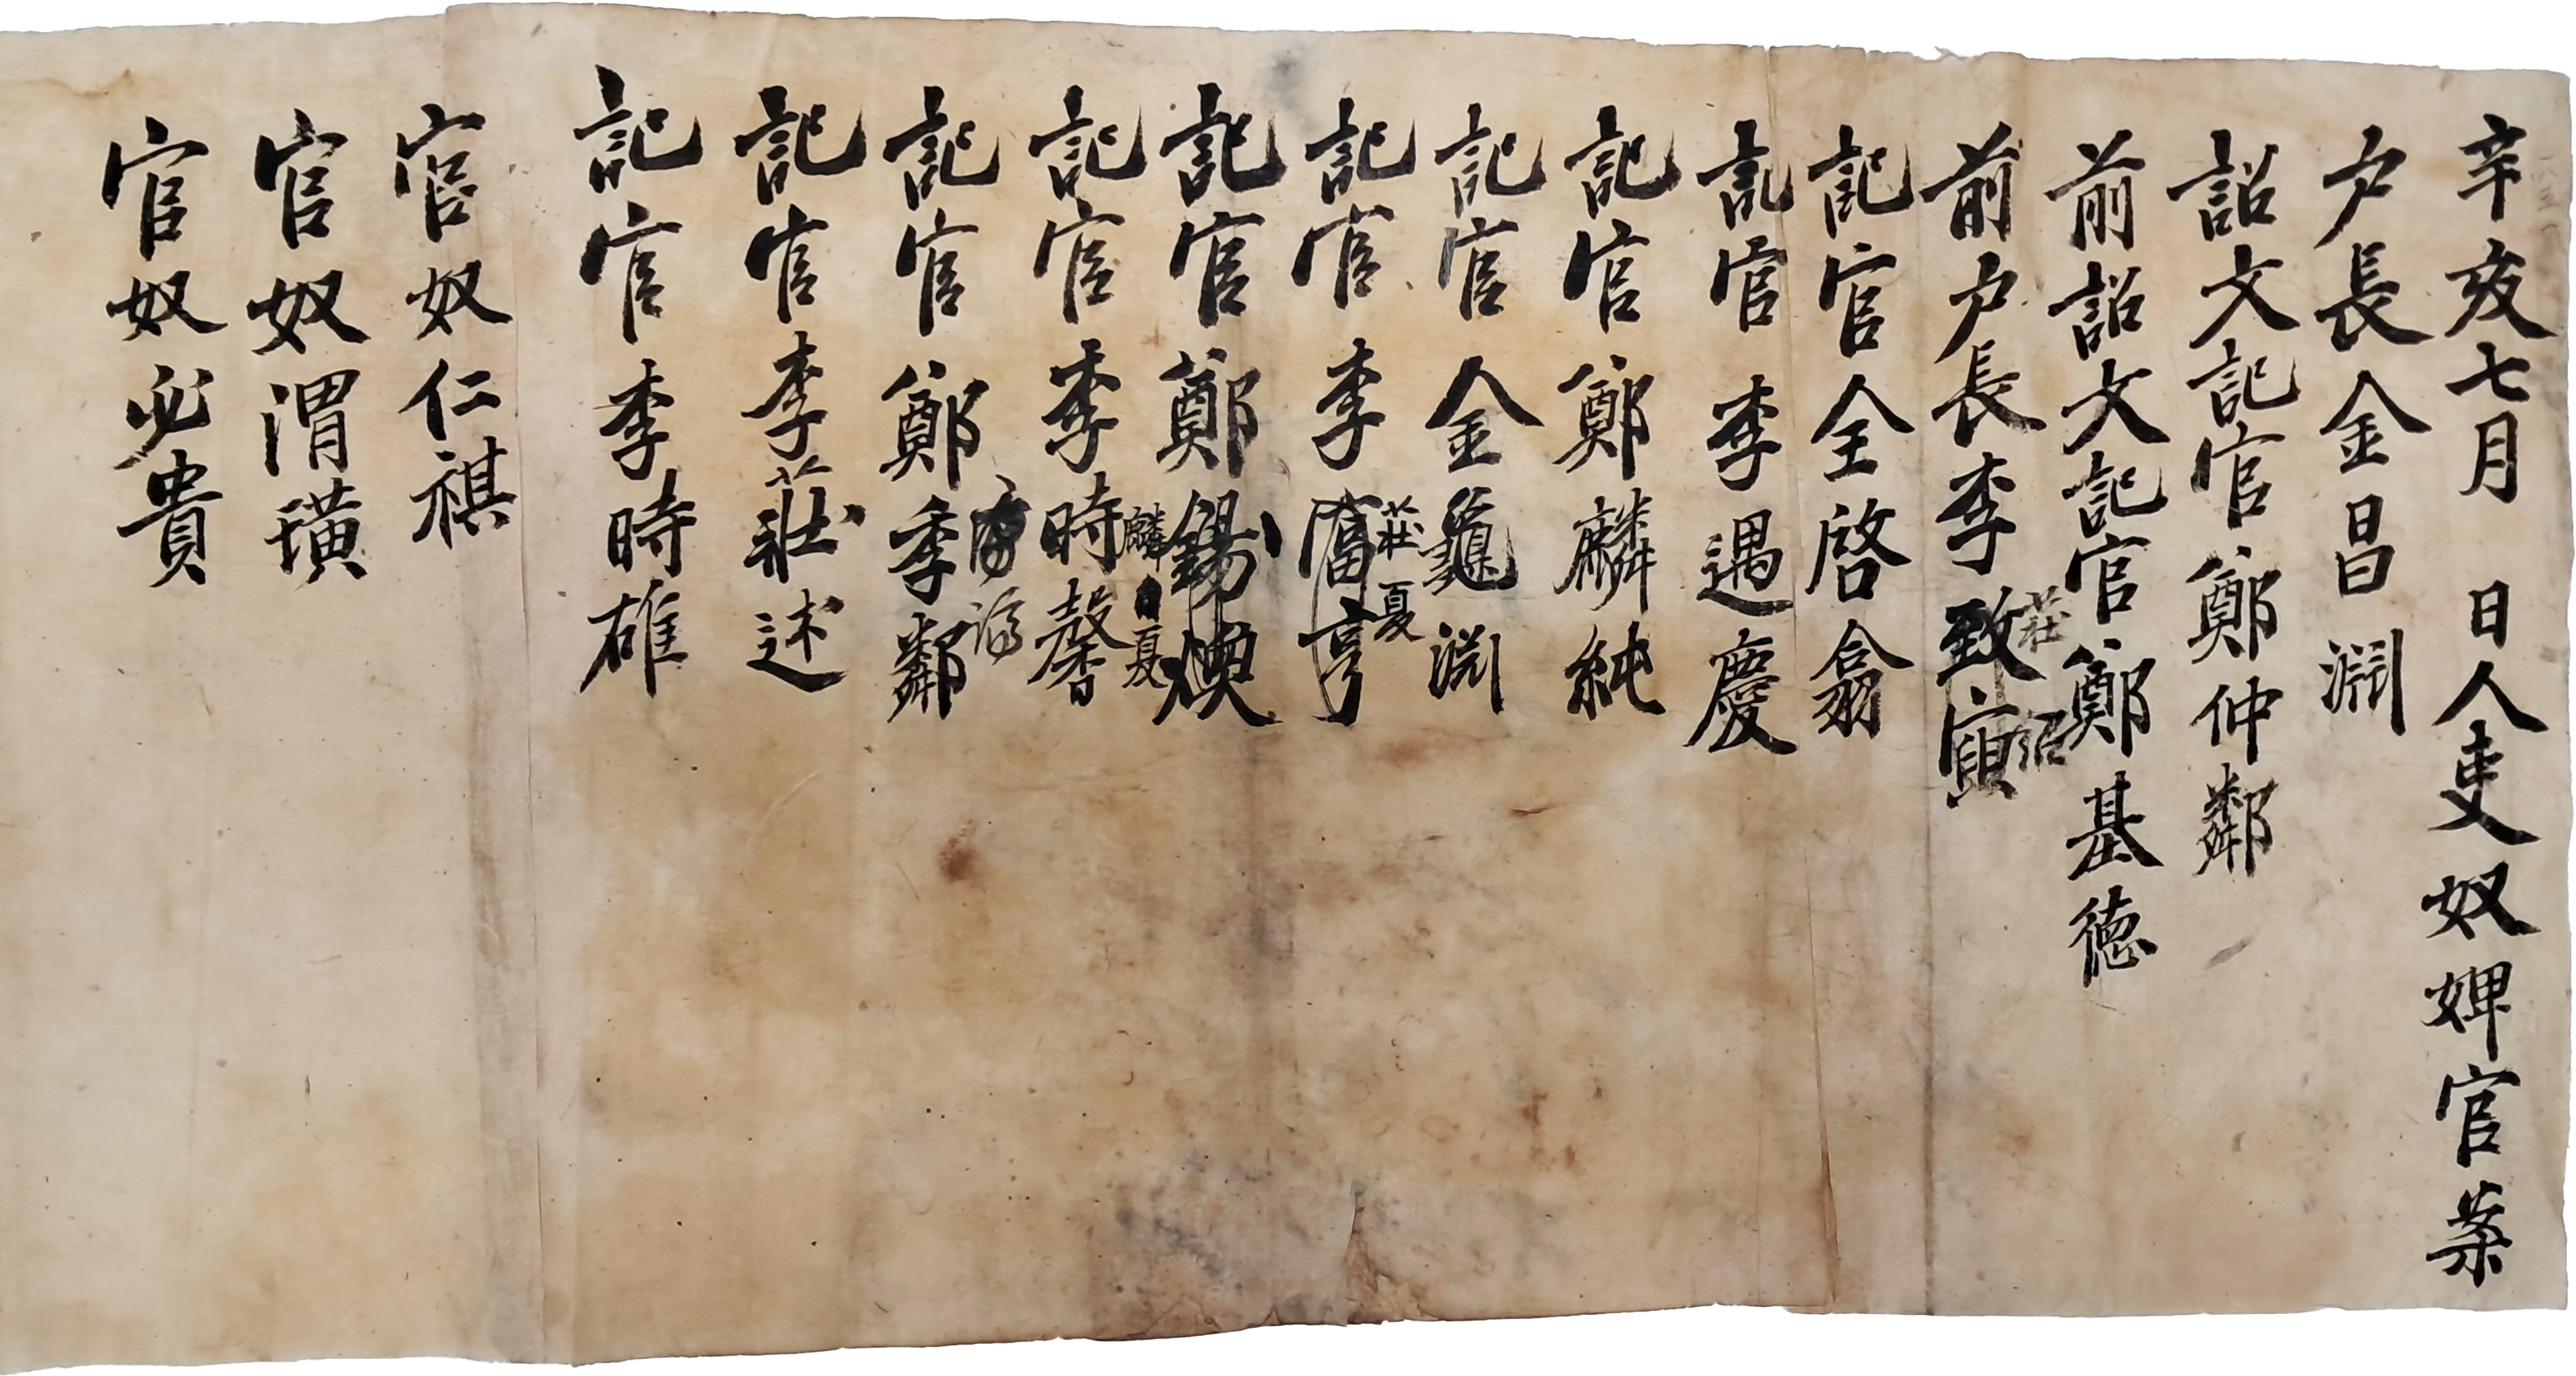 辛亥七月 日人吏奴婢官案
戶長金昌淵
詔文記官鄭仲鄰
前詔文記官鄭基德
莊
前戶長李致寅
記官全啓翕
記官李遇慶
記官鄭麟純
記官金龜淵
莊夏
記官李奮亨
記官鄭錫煥
麟夏
記官李時馨
記官鄭季鄰
記官李莊述
記官李時雄
官奴仁祺
官奴渭璜
官奴必貴